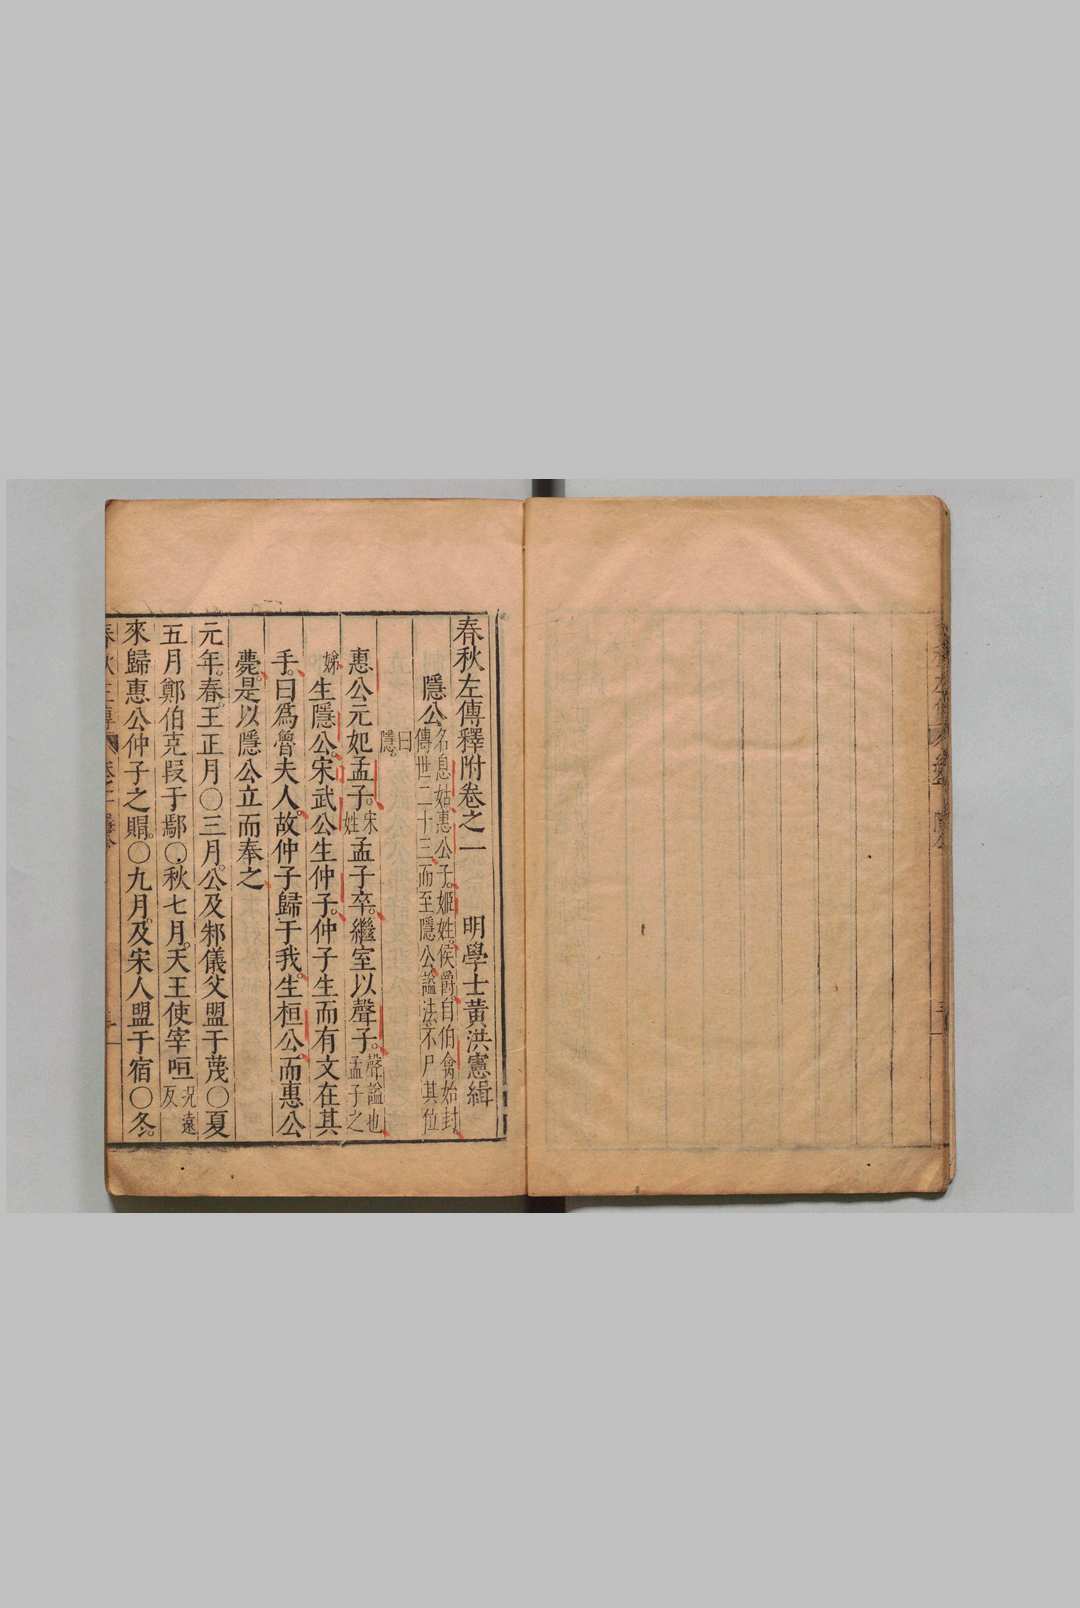 春秋左傳釋附卷之一　明學士黃洪憲緝
隱公
名息姑惠公子。姬姓侯爵自伯禽始封
傳世二十三而至隱公謚法不尸其位
曰
隱。
惠公元妃孟子。
宋
姓
孟子卒。繼室以聲子。
聲謚也
孟子之
娣
生隱公。宋武公生仲子。仲子生而有文在其
手。曰爲魯夫人。故仲子歸于我。生桓公。而惠公
薨。是以隱公立而奉之
元年。春。王正月〇三月。公及邾儀父盟于蔑〇夏
五月鄭伯克段于鄢〇秋七月。天王使宰咺
况遠
反
來歸惠公仲子之賵。〇九月。及宋人盟于宿〇冬。
春秋左傳　卷之一　隱公